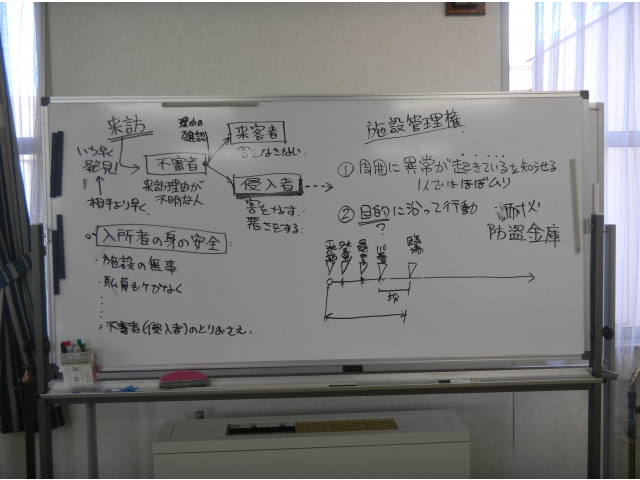 来訪
いち早く
発見!
相手より早く
不審者
来訪理由が
不明な人
理由
確認
来客者
害をなさない
侵入者
害をなす
悪さをする
◎入所者の身の安全
・施設の無事
・職員もケガなく
・不審者(侵入者)のとりおさえ
施設管理権
① 周囲に異常が起きているを知らせる
1人ではほぼムリ
② 目的に沿って行動
?
耐火
防盗金庫
来訪
110番
臨場
5分